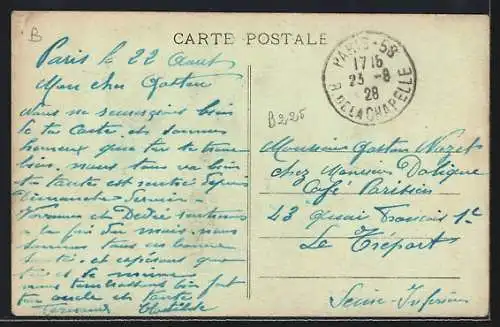 B
CARTE POSTALE
PARIS - 58
1715
23 - 8
28
R. DE LA CHAPELLE
B225
Paris le 22 Aout
Mon cher Gaston
Nous te remercions bien
de ta Carte et sommes
heureux que tu te trouve
bien. nous tous va bien
ta tante est rentré depuis
Dimanche dernier
et Dédée
à la fin du mois. nous
sommes tous en bonne
santé et espérons que
toi de même
nous t'embrassons bien fort
ton oncle et tante
Fernand Clotilde
Monsieur Gaston Nazet
chez Monsieur
Café Parisien
43 Quai Francois 1er
Le Tréport
Seine-Inférieure